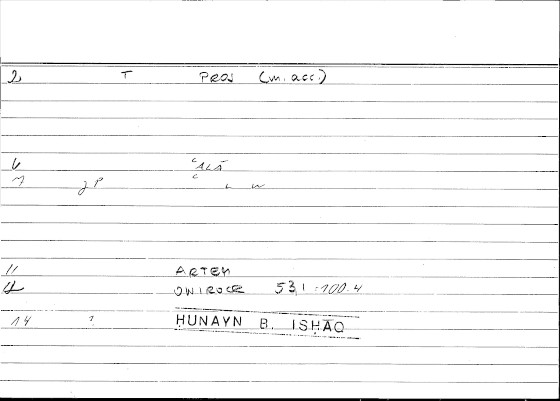 2 T PROS (m. acc.)
6 ʿALĀ
7 JP
11 ARTEM
12 ONIROCR 53,1 -100.4
14 ? ḤUNAYN B. ISḤĀQ